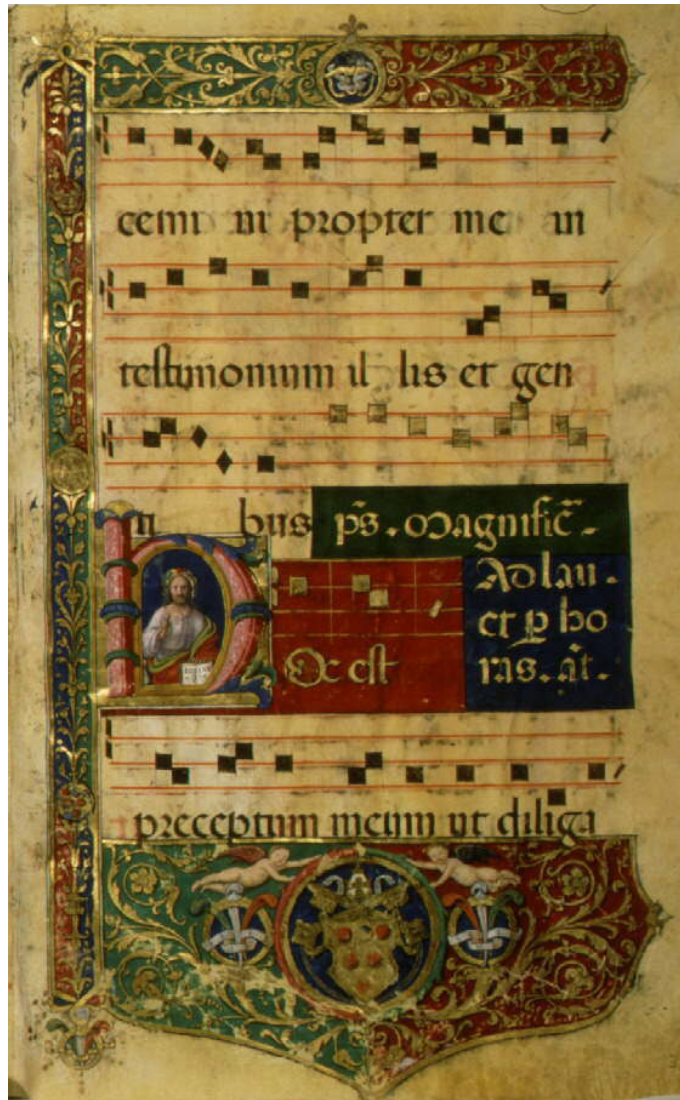 cemi ni propter me in
testimonium il lis et gen
ti bus ps. Magnific̄.
Ad lau.
et p̱ ho
Oc est ras. añt.
preceptum meum ut diliga